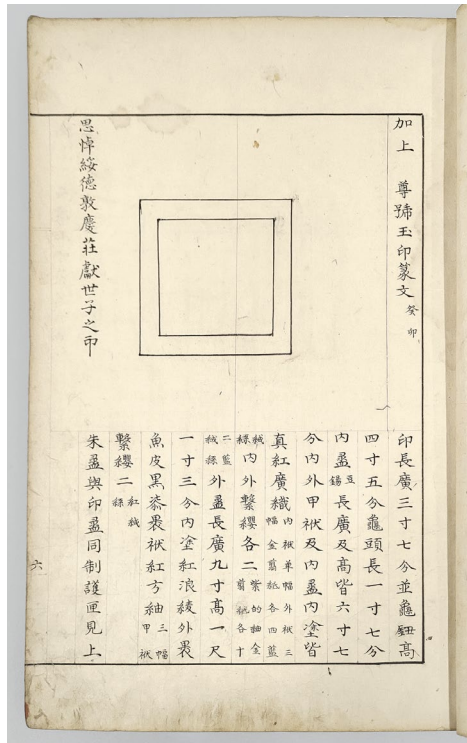 加上 尊號玉印篆文 癸卯
思悼綏德敦慶莊獻世子之印
印長廣三寸七分並龜鈕高
四寸五分龜頭長一寸七分
內盝豆錫長廣及高皆六寸七
分內外甲袱及內盝內塗皆
真紅廣織內袱單幅外袱三幅金剪紙各四藍
絨絲內外繫纓各二紫的紬金剪紙各十
二藍絨絲外盝長廣九寸高一尺
一寸三分內塗紅浪綾外裹
魚皮黑漆裹袱紅方紬三幅甲袱
繫纓二紅絨絲
朱盝與印盝同制護匣見上
六